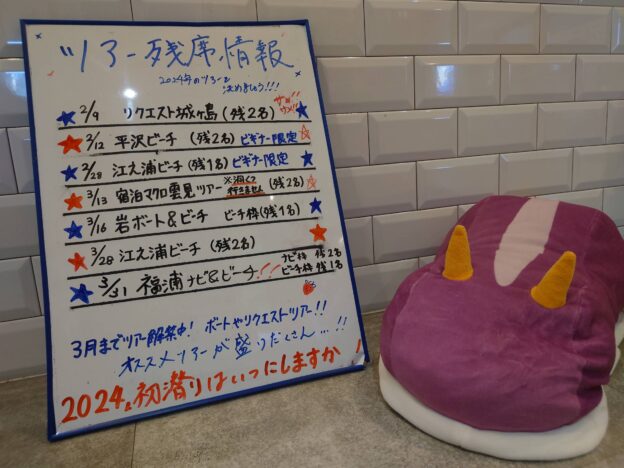 ツアー残席情報
2024年のツアーを
決めましょう!!!
2/9 リクエスト城ヶ島 (残2名)
2/12 平沢ビーチ (残2名) ビギナー限定
2/28 江之浦ビーチ (残1名) ビギナー限定
3/13 宿泊マクロ雲見ツアー ※海くつ行きません (残2名)
3/16 岩ボート&ビーチ ビーチ枠(残1名)
3/28 江之浦ビーチ (残2名)
3/31 福浦ナビ&ビーチ!! ナビ枠 残2名
ビーチ枠 残1名
3月までツアー解禁中! ボートやリクエストツアー!!
オススメツアーが盛りだくさん…!!
2024初潜りはいつにしますか!